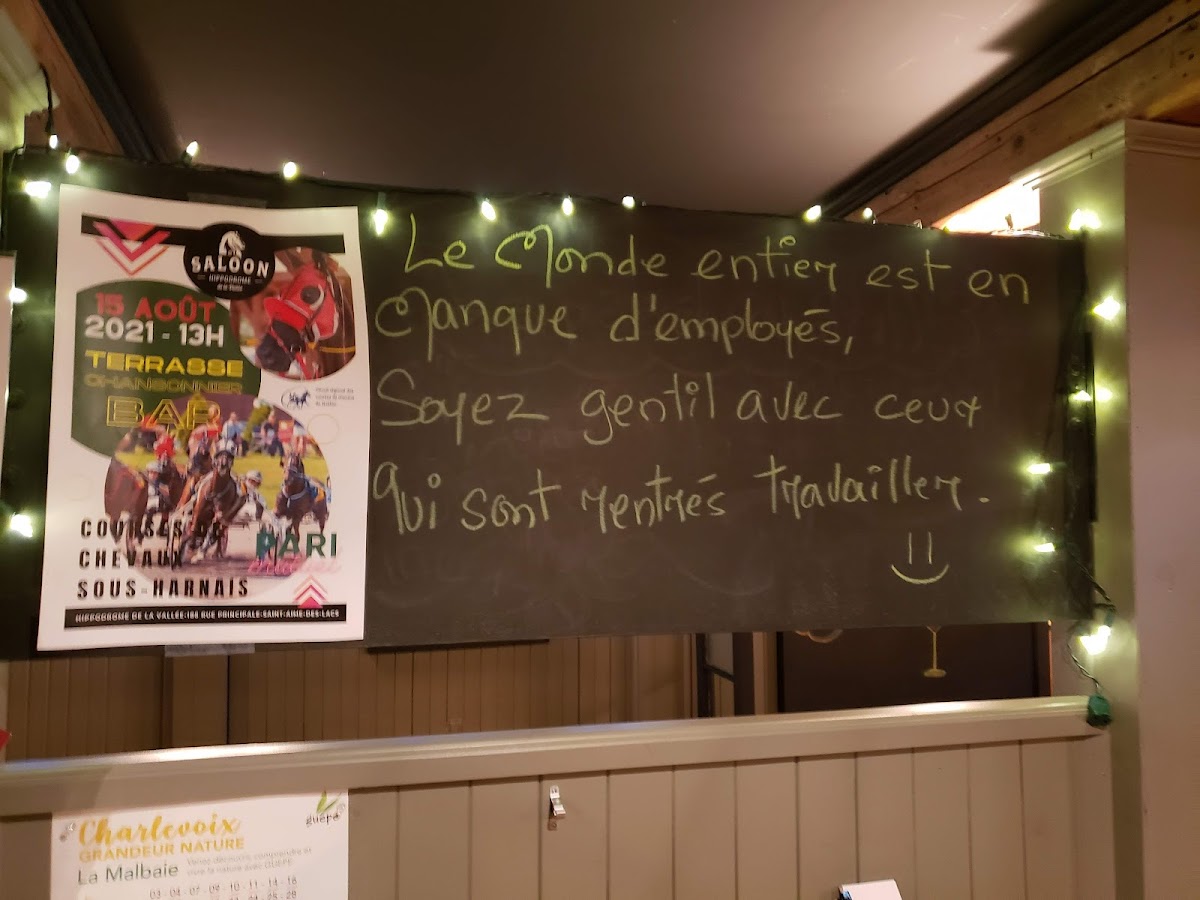 SALOON
HIPPODROME
15 AOÛT
2021 - 13H
TERRASSE
CHANSONNIER
BAR
COURSES DE
CHEVAUX
SOUS-HARNAIS
PARI
HIPPODROME DE LA VALLÉE-186 RUE PRINCIPALE-SAINT-AIMÉ-DES-LACS
Le Monde entier est en
Manque d'employés,
Soyez gentil avec ceux
Qui sont rentrés travailler.
Charlevoix
GRANDEUR NATURE
guepe
La Malbaie
Venez découvrir, comprendre et
vivre la nature avec GUEPE
03 - 04 - 07 - 09 - 10 - 11 - 14 - 16